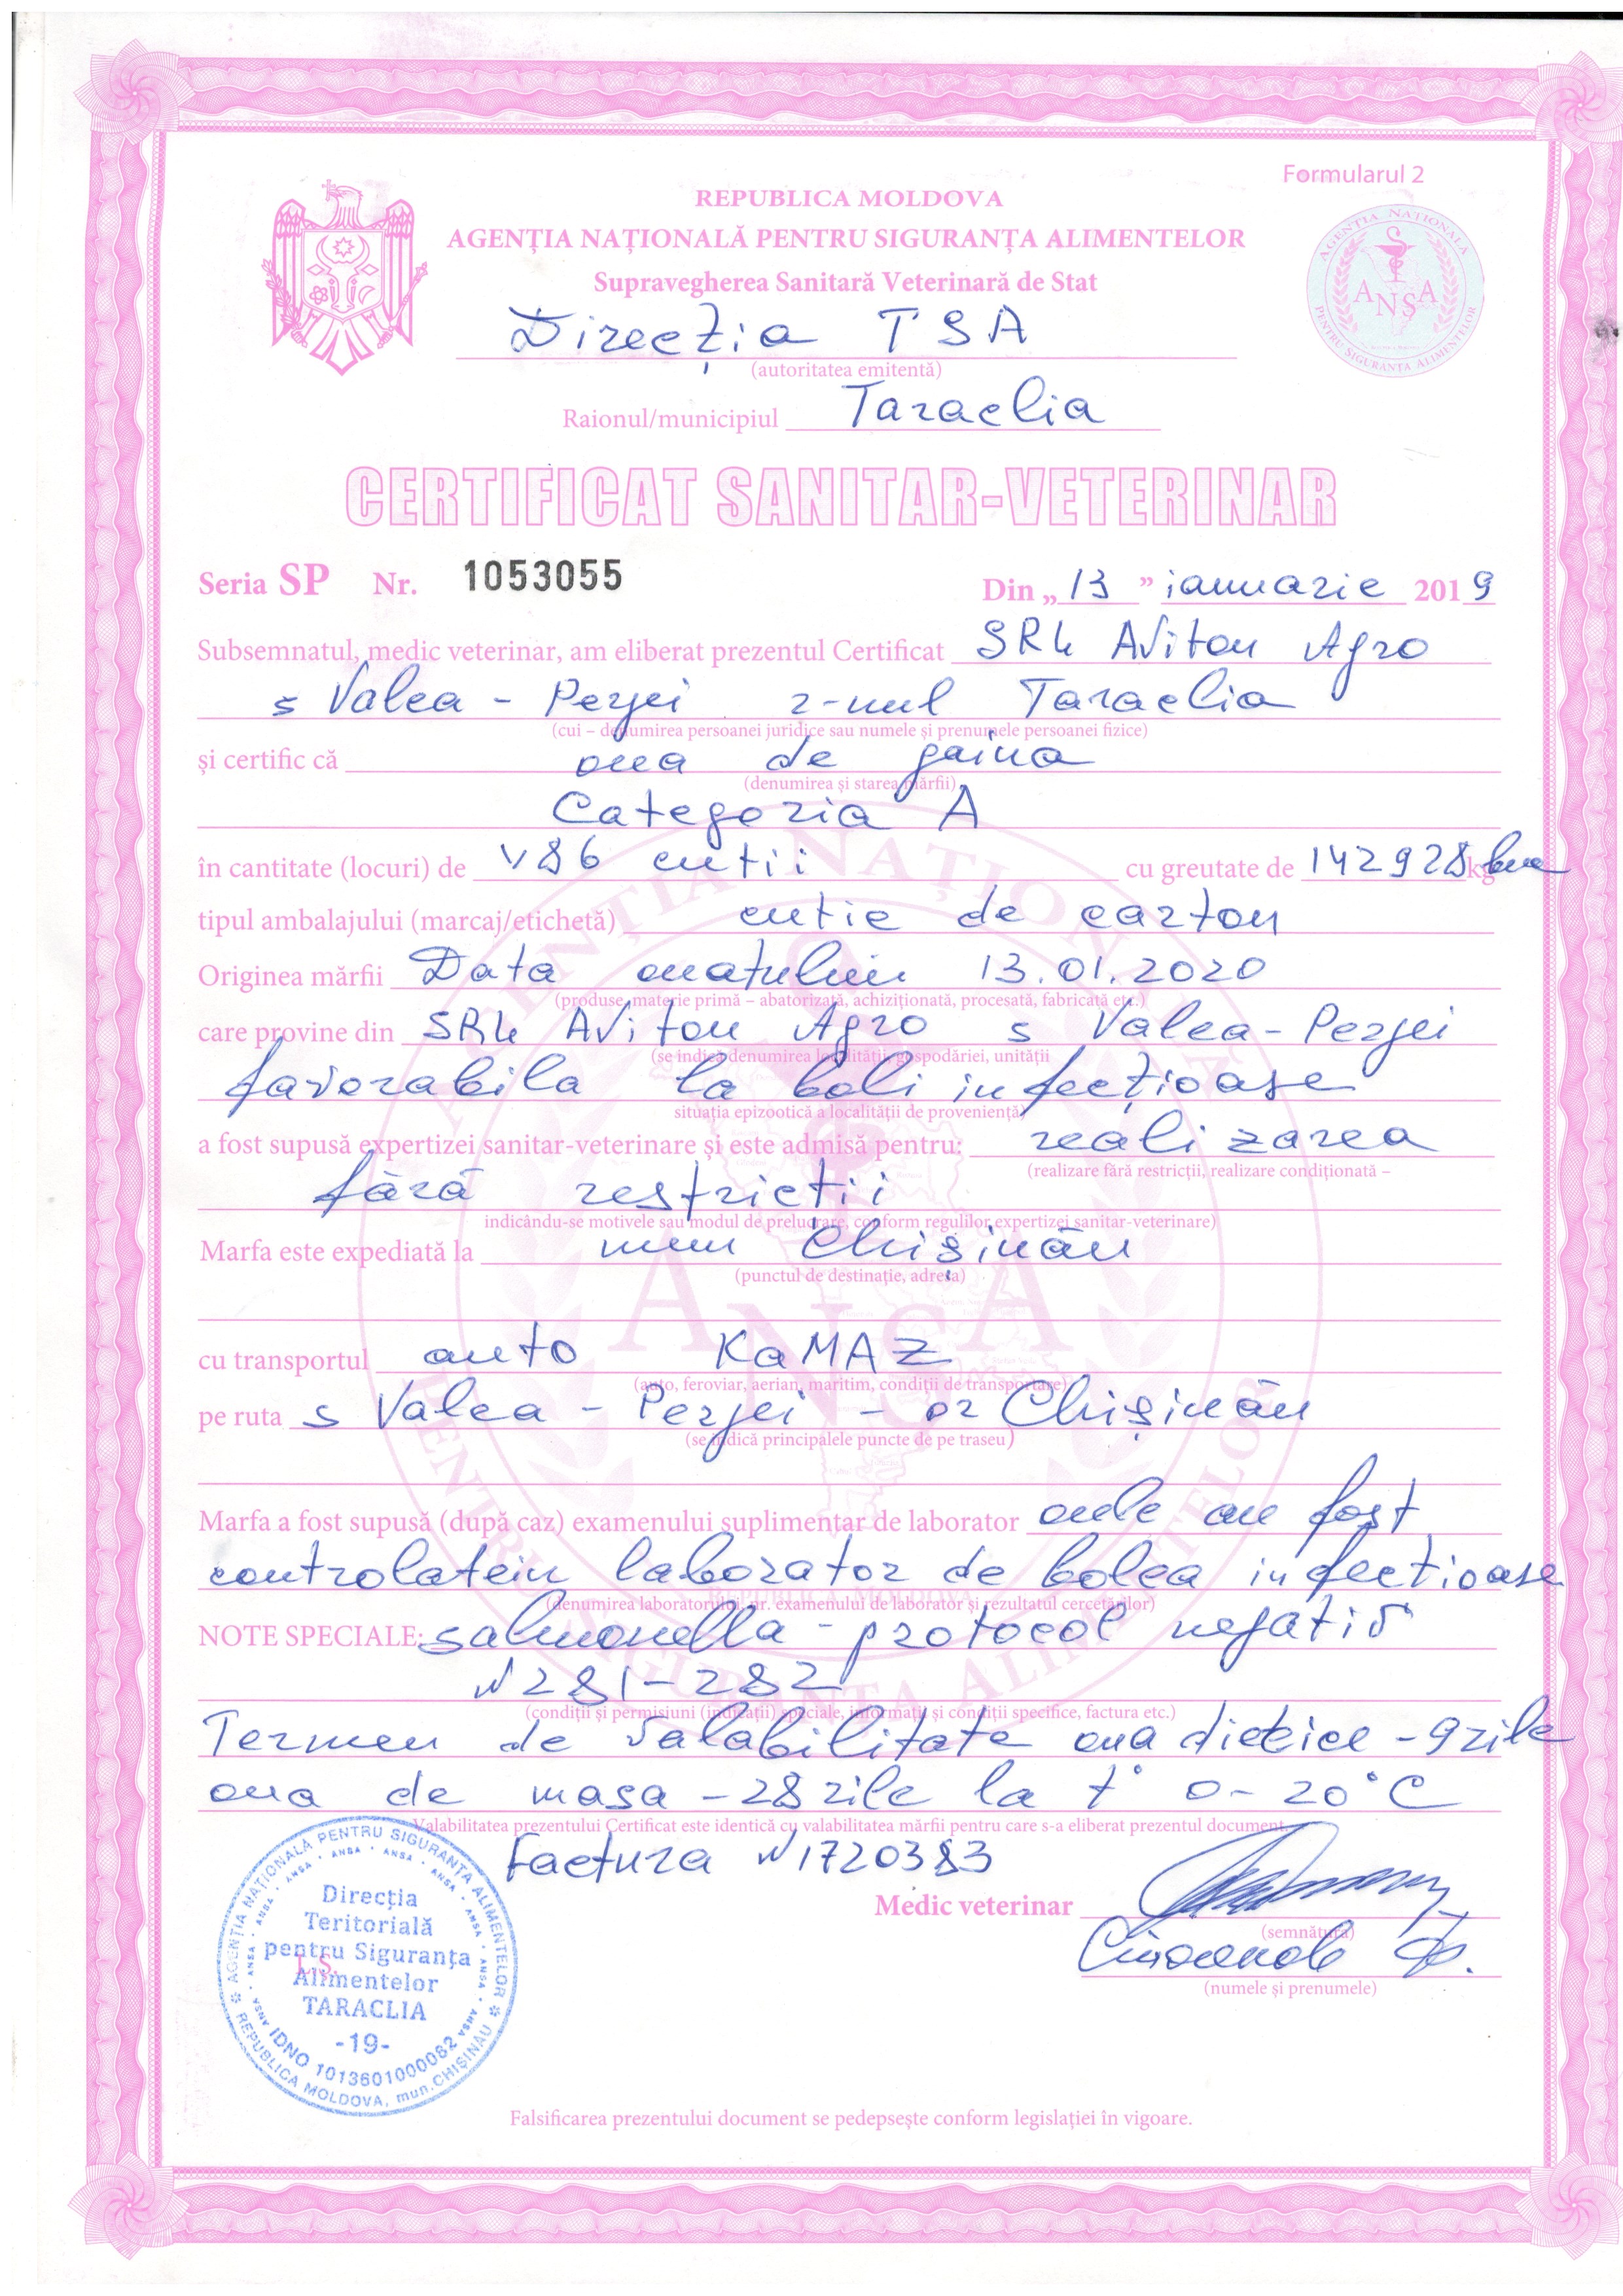 Formularul 2
REPUBLICA MOLDOVA
AGENȚIA NAȚIONALĂ PENTRU SIGURANȚA ALIMENTELOR
Supravegherea Sanitară Veterinară de Stat
AGENȚIA NAȚIONALĂ PENTRU SIGURANȚA ALIMENTELOR
ANSA
Direcția TSA
(autoritatea emitentă)
Raionul/municipiul Taraclia
CERTIFICAT SANITAR-VETERINAR
Seria SP Nr. 1053055 Din „13” ianuarie 2019
Subsemnatul, medic veterinar, am eliberat prezentul Certificat SRL Aviton Agro
s Valea - Perjei r-nul Taraclia
(cui – denumirea persoanei juridice sau numele și prenumele persoanei fizice)
și certific că oua de gaina
(denumirea și starea mărfii)
Categoria A
în cantitate (locuri) de 86 cutii cu greutate de 142928 kg buc
tipul ambalajului (marcaj/etichetă) cutie de carton
Originea mărfii Data ouatului 13.01.2020
(produse, materie primă – abatorizată, achiziționată, procesată, fabricată etc.)
care provine din SRL Aviton Agro s Valea-Perjei
(se indică denumirea localității, gospodăriei, unității
favorabila la boli infecțioase
situația epizootică a localității de proveniență)
a fost supusă expertizei sanitar-veterinare și este admisă pentru: realizarea
(realizare fără restricții, realizare condiționată –
fără restrictii
indicându-se motivele sau modul de prelucrare, conform regulilor expertizei sanitar-veterinare)
Marfa este expediată la mun Chișinău
(punctul de destinație, adresa)
cu transportul auto KaMAZ
(auto, feroviar, aerian, maritim, condiții de transportare)
pe ruta s Valea - Perjei - or Chișinău
(se indică principalele puncte de pe traseu)
Marfa a fost supusă (după caz) examenului suplimentar de laborator ouăle au fost
controlate in laborator de bolea infectioase
(denumirea laboratorului, nr. examenului de laborator și rezultatul cercetărilor)
NOTE SPECIALE: salmonella - protocol negativ
N281-282
(condiții și permisiuni (indicații) speciale, informații și condiții specifice, factura etc.)
Termen de valabilitate oua dietice - 9zile
oua de masa - 28 zile la t° 0- 20°C
Valabilitatea prezentului Certificat este identică cu valabilitatea mărfii pentru care s-a eliberat prezentul document.
Factura N1720383
Medic veterinar
(semnătura)
(numele și prenumele)
L.Ș.
AGENȚIA NAȚIONALĂ PENTRU SIGURANȚA ALIMENTELOR
REPUBLICA MOLDOVA, mun. CHIȘINĂU
Direcția
Teritorială
pentru Siguranța
Alimentelor
TARACLIA
-19-
IDNO 1013601000062
Falsificarea prezentului document se pedepsește conform legislației în vigoare.